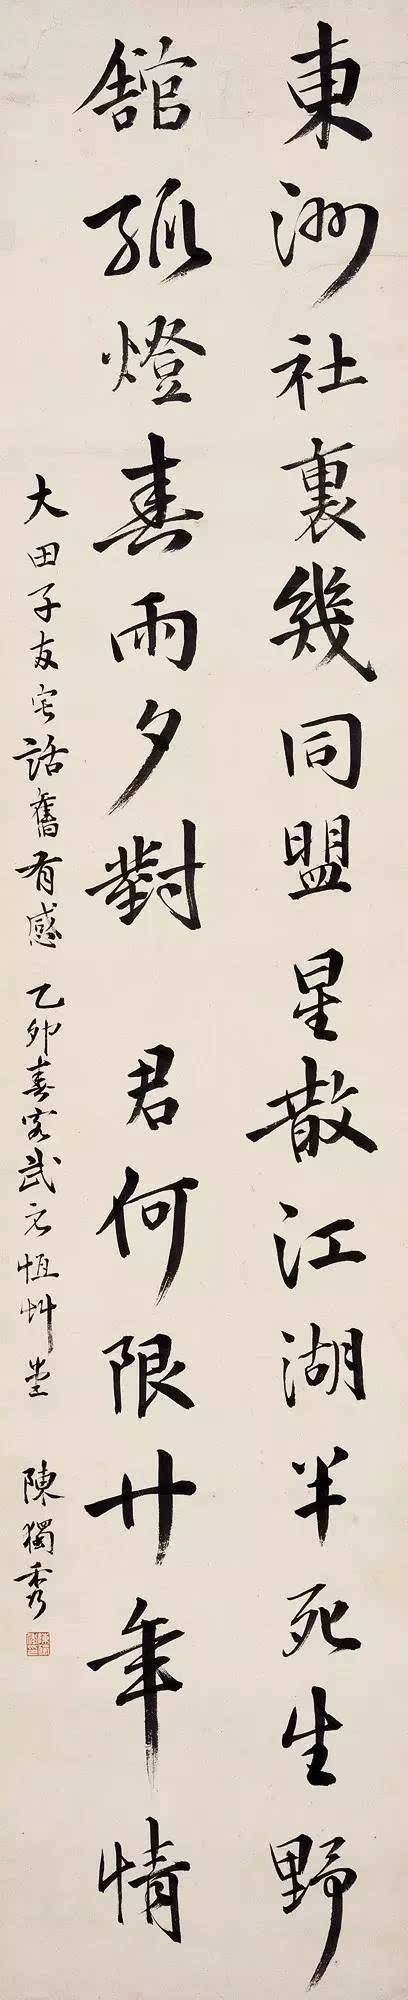 東洲社裏幾同盟星散江湖半死生野
館孤燈春雨夕對君何限廿年情
大田子友宅話舊有感 乙卯春客武
恆艸堂 陳獨秀